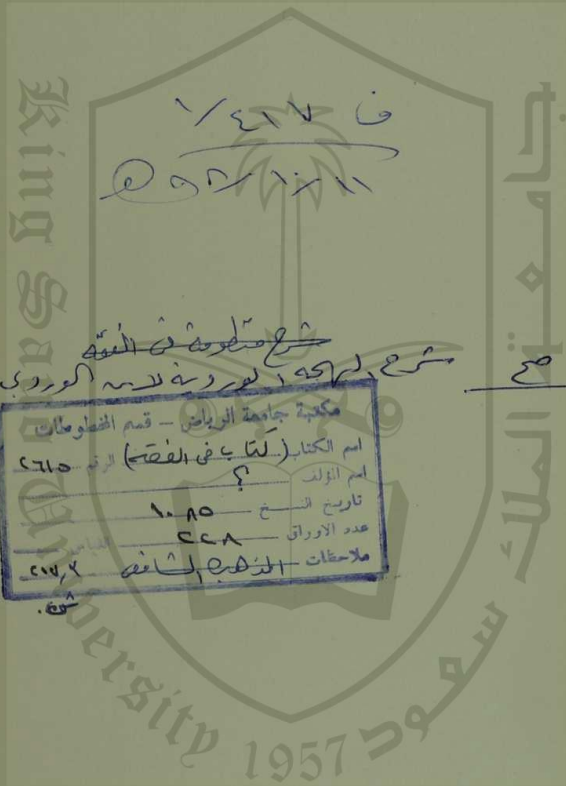 ف ٤١٧ / ١
١١ / ١٠ / ٩٨ هـ
شرح منظومة في الفقه
صح شرح البهجة الوردية لابن الوردي
مكتبة جامعة الرياض – قسم المخطوطات
اسم الكتاب (كتاب في الفقه) الرقم ٢٦١٥
اسم المؤلف ؟
تاريخ النسخ ١٠٨٥
عدد الاوراق ٢٢٨ القياس
ملاحظات – المذهب الشافعي ٢١٧٫٣
King Saud University 1957
جامعة الملك سعود